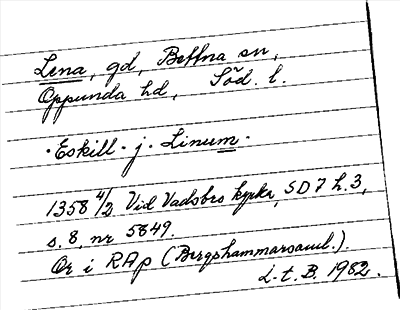 Lena, gd, Bettna sn,
Oppunda hd, Söd. l.
·Eskill· j· Linum·
1358 4/2 Vid Vadsbro kyrka, SD 7 h. 3,
s. 8 nr 5849.
Or i RAp (Bergshammarsaml.).
L. t. B. 1982.